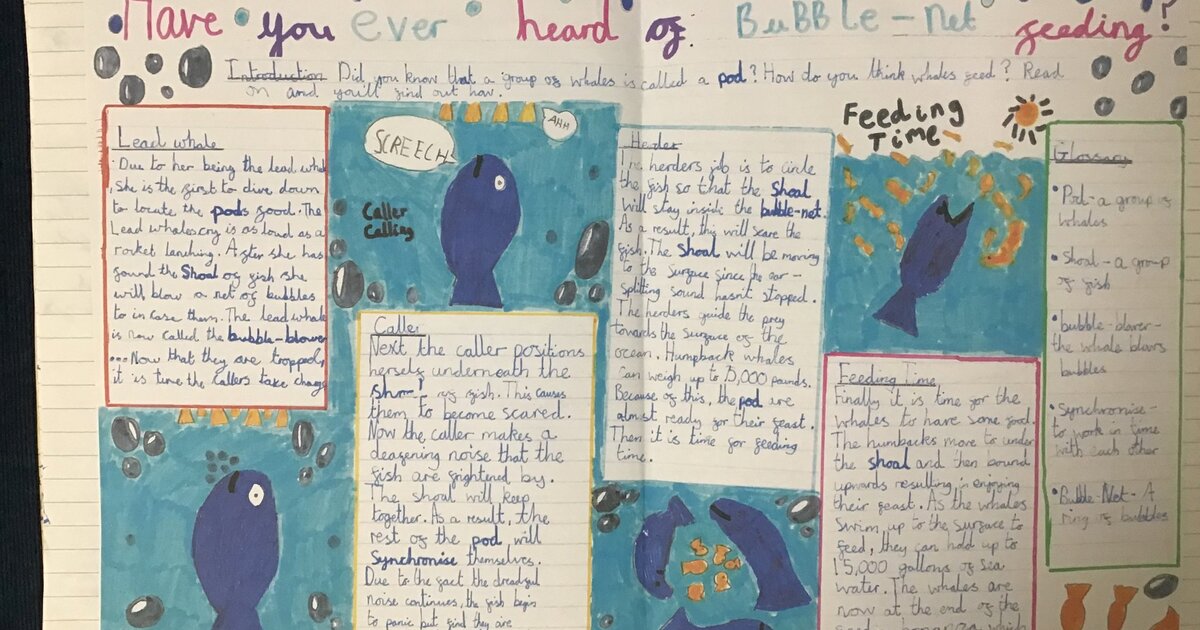 Have you ever heard of BuBBle-net feeding?
Introduction Did you know that a group of whales is called a pod? How do you think whales feed? Read
on and you'll find out how.
Lead whale
Due to her being the lead whale
, she is the first to dive down
to locate the pods food. The
Lead whales cry is as loud as a
rocket lanching. After she has
found the Shoal of fish she
will blow a net of bubbles
to in case them. The lead whale
is now called the bubble-blower
... Now that they are trapped,
it is time the callers take charge
SCREECH
AHH
Caller
Calling
Caller
Next the caller positions
herself underneath the
shoal of fish. This causes
them to become scared.
Now the caller makes a
deafening noise that the
fish are frightened by.
The shoal will keep
together. As a result, the
rest of the pod, will
Synchronise themselves.
Due to the fact the dreadful
noise continues, the fish begin
to panic but find they are
Herder
The herders job is to circle
the fish so that the Shoal
will stay inside the bubble-net.
As a result, this will scare the
fish. The Shoal will be moving
to the surface since the ear-
splitting sound hasn't stopped.
The herders guide the prey
towards the surface of the
ocean. Humpback whales
can weigh up to 15,000 pounds.
Because of this, the pod are
almost ready for their feast.
Then it is time for feeding
time.
Feeding
Time
Feeding Time
Finally it is time for the
whales to have some food.
The humbacks move to under
the shoal and then bound
upwards resulting in enjoying
their feast. As the whales
swim up to the surface to
feed, they can hold up to
15,000 gallons of sea
water. The whales are
now at the end of the
bonanza which
Glossary
• Pod - a group of
whales
• Shoal - a group
of fish
• bubble-blower -
the whale blows
bubbles
• Synchronise -
to work in time
with each other
• Bubble Net - A
ring of bubbles